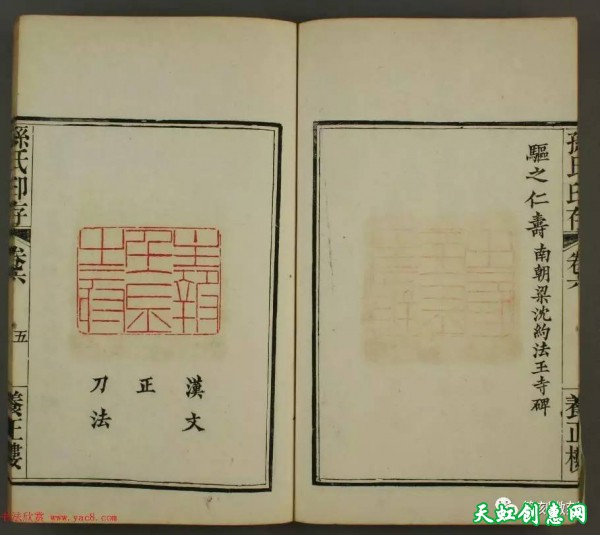 驅之仁壽 南朝梁沈約法王寺碑
孫氏印存
卷六
養正樓
漢文
正
刀法
孫氏印存
卷六
五
養正樓
书法欣赏 www.yac8.com
天虹创意网